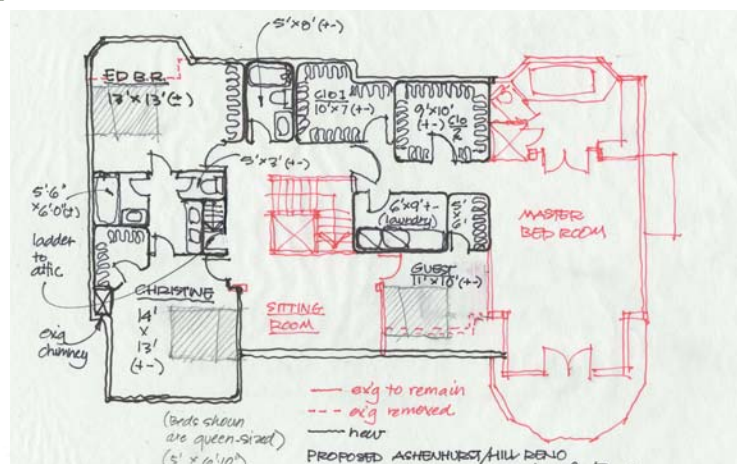 5'x8' (+-)
ED B.R.
13'x13'(±)
CLO 1
10'x7 (+-)
9'x10'
(+-) CLO
2
5'x3' (+-)
5'-6"
x6'-0"(±)
6'x9'+-
(laundry)
5'
x
6'
MASTER
BED ROOM
ladder
to
attic
GUEST
11'x10'(+-)
CHRISTINE
14'
x
13'
(+-)
SITTING
ROOM
exig
chimney
exig to remain
exig removed
new
(Beds shown
are queen-sized)
(5' x 6'10")
PROPOSED ASHENHURST/HILL RENO